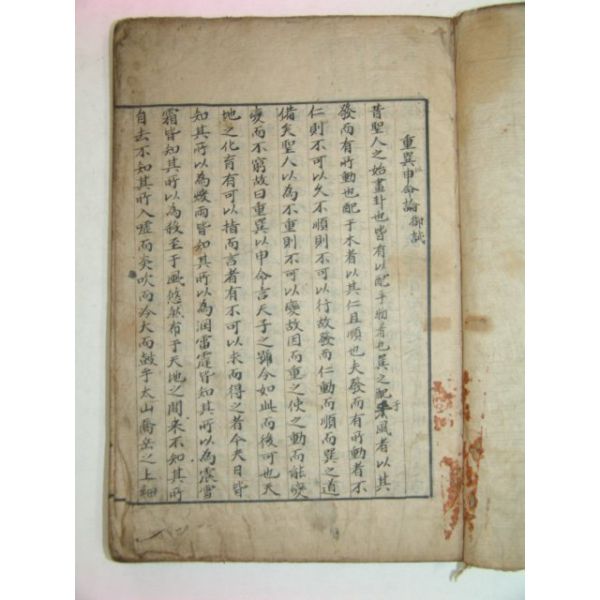 重巽申命論 御試
昔聖人之始畫卦也皆有以配乎物者也巽之配于風者以其
發而有所動也配于木者以其仁且順也夫發而有所動者不
仁則不可以久不順則不可以行故發而仁動而順而巽之道
備矣聖人以為不重則不可以變故因而重之使之動而能變
變而不窮故曰重巽以申命言天子之號令如此而後可也天
地之化育有可以指而言者有不可以求而得之者今天日皆
知其所以為煖雨皆知其所以為润雷霆皆知其所以為震雪
霜皆知其所以為殺至于風悠然布于天地之間来不知其所
自去不知其所入噓而炎吹而冷大而鼓乎太山喬岳之上細